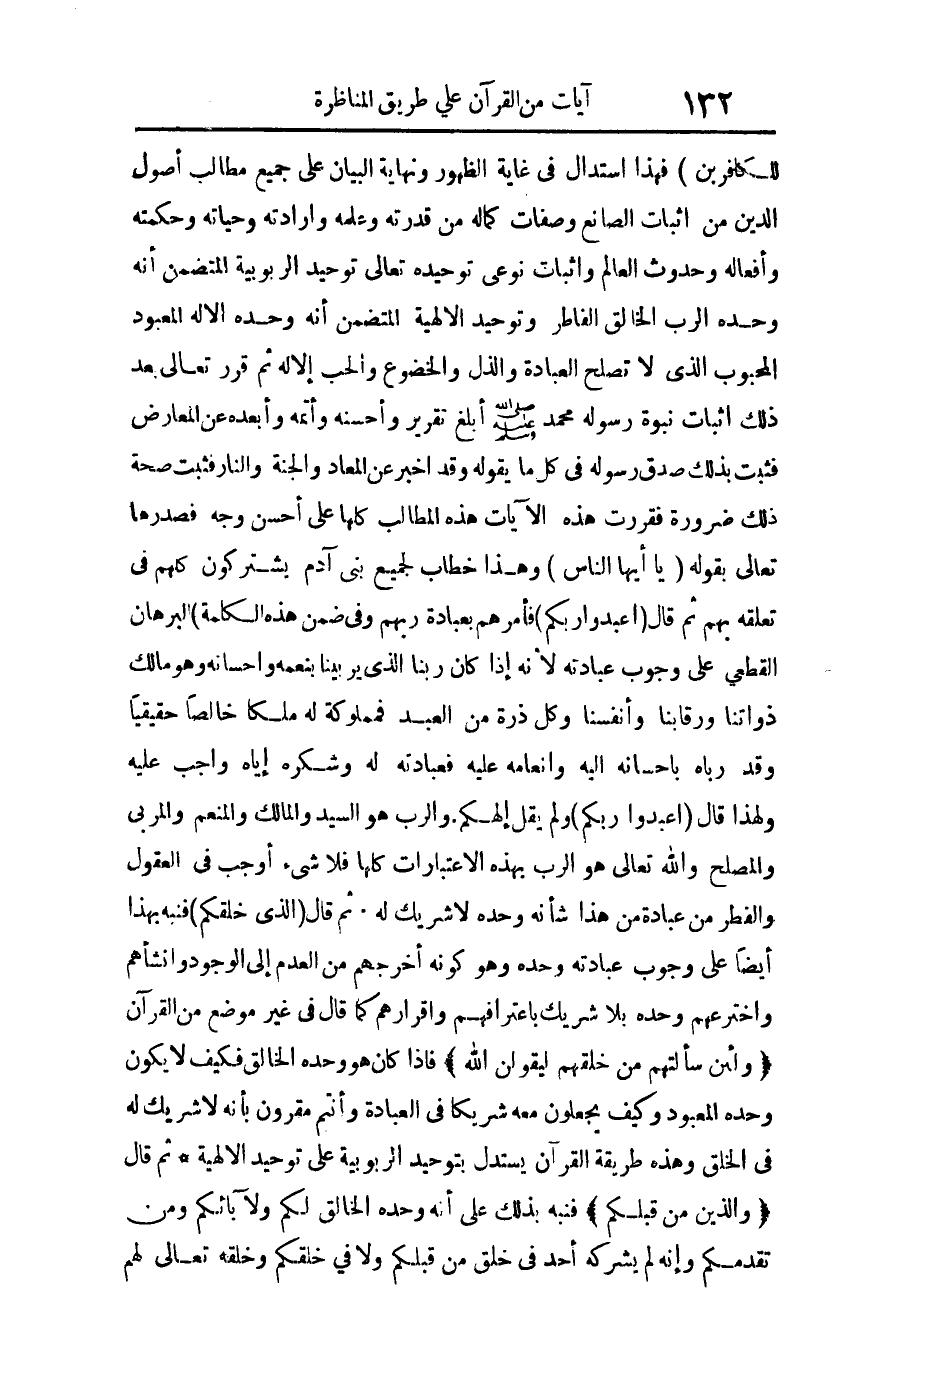 ١٣٢ آيات من القرآن على طريق المناظرة
للكافرين ) فهذا استدال فى غاية الظهور ونهاية البيان على جميع مطالب أصول
الدين من اثبات الصانع وصفات كماله من قدرته وعلمه وارادته وحياته وحكمته
وأفعاله وحدوث العالم واثبات نوعى توحيده تعالى توحيد الربوبية المتضمن أنه
وحده الرب الخالق الفاطر وتوحيد الالهية المتضمن أنه وحده الاله المعبود
المحبوب الذى لا تصلح العبادة والذل والخضوع والحب إلاله ثم قرر تعالى بعد
ذلك اثبات نبوة رسوله محمد ﷺ أبلغ تقرير وأحسنه وأتمه وأبعده عن المعارض
فثبت بذلك صدق رسوله فى كل ما يقوله وقد اخبر عن المعاد والجنة والنار فثبت صحة
ذلك ضرورة فقررت هذه الآيات هذه المطالب كلها على أحسن وجه فصدرها
تعالى بقوله ( يا أيها الناس ) وهذا خطاب لجميع بنى آدم يشتركون كلهم فى
تعلقه بهم ثم قال (اعبدوا ربكم) فأمرهم بعبادة ربهم وفى ضمن هذه الكلمة) البرهان
القطعي على وجوب عبادته لأنه إذا كان ربنا الذى يربينا بنعمه واحسانه وهو مالك
ذواتنا ورقابنا وأنفسنا وكل ذرة من العبد فمملوكة له ملكا خالصاً حقيقياً
وقد رباه باحسانه اليه وانعامه عليه فعبادته له وشكره إياه واجب عليه
ولهذا قال (اعبدوا ربكم) ولم يقل إلهكم. والرب هو السيد والمالك والمنعم والمربى
والمصلح والله تعالى هو الرب بهذه الاعتبارات كلها فلا شىء أوجب فى العقول
والفطر من عبادة من هذا شأنه وحده لاشريك له . ثم قال (الذى خلقكم) فنبه بهذا
أيضاً على وجوب عبادته وحده وهو كونه أخرجهم من العدم إلى الوجود وانشأهم
واخترعهم وحده بلا شريك باعترافهم واقرارهم كما قال فى غير موضع من القرآن
﴿ ولئن سألتهم من خلقهم ليقولن الله ﴾ فاذا كان هو وحده الخالق فكيف لا يكون
وحده المعبود وكيف يجعلون معه شريكا فى العبادة وأنتم مقرون بأنه لاشريك له
فى الخلق وهذه طريقة القرآن يستدل بتوحيد الربوبية على توحيد الالهية * ثم قال
﴿ والذين من قبلكم ﴾ فنبه بذلك على أنه وحده الخالق لكم ولآبائكم ومن
تقدمكم وإنه لم يشركه أحد فى خلق من قبلكم ولا في خلقكم وخلقه تعالى لهم